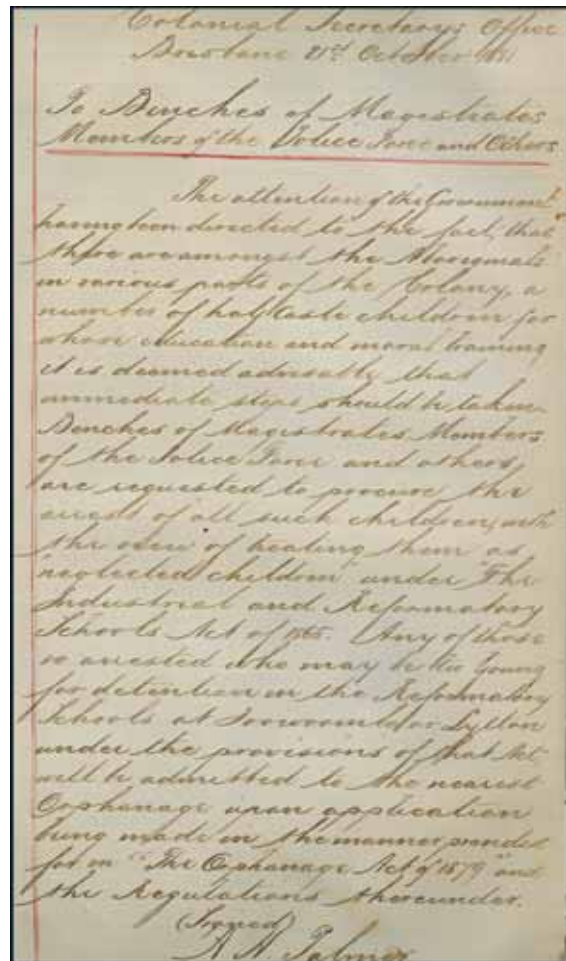 Colonial Secretary's Office
Brisbane 21st October 1881
To Benches of Magistrates
Members of the Police Force and Others
The attention of the Government
having been directed to the fact, that
there are amongst the Aboriginals
in various parts of the Colony, a
number of half caste children for
whose education and moral training
it is deemed advisable that
immediate steps should be taken
Benches of Magistrates Members
of the Police Force and others
are requested to procure the
arrest of all such children, with
the view of treating them as
"neglected children" under "The
Industrial and Reformatory
Schools Act of 1865. Any of those
so arrested who may be too young
for detention in the Reformatory
Schools at Toowoomba or Lytton
under the provisions of that Act
will be admitted to the nearest
Orphanage upon application
being made in the manner provided
for in "The Orphanage Act of 1879" and
the Regulations thereunder.
(Signed)
A. H. Palmer